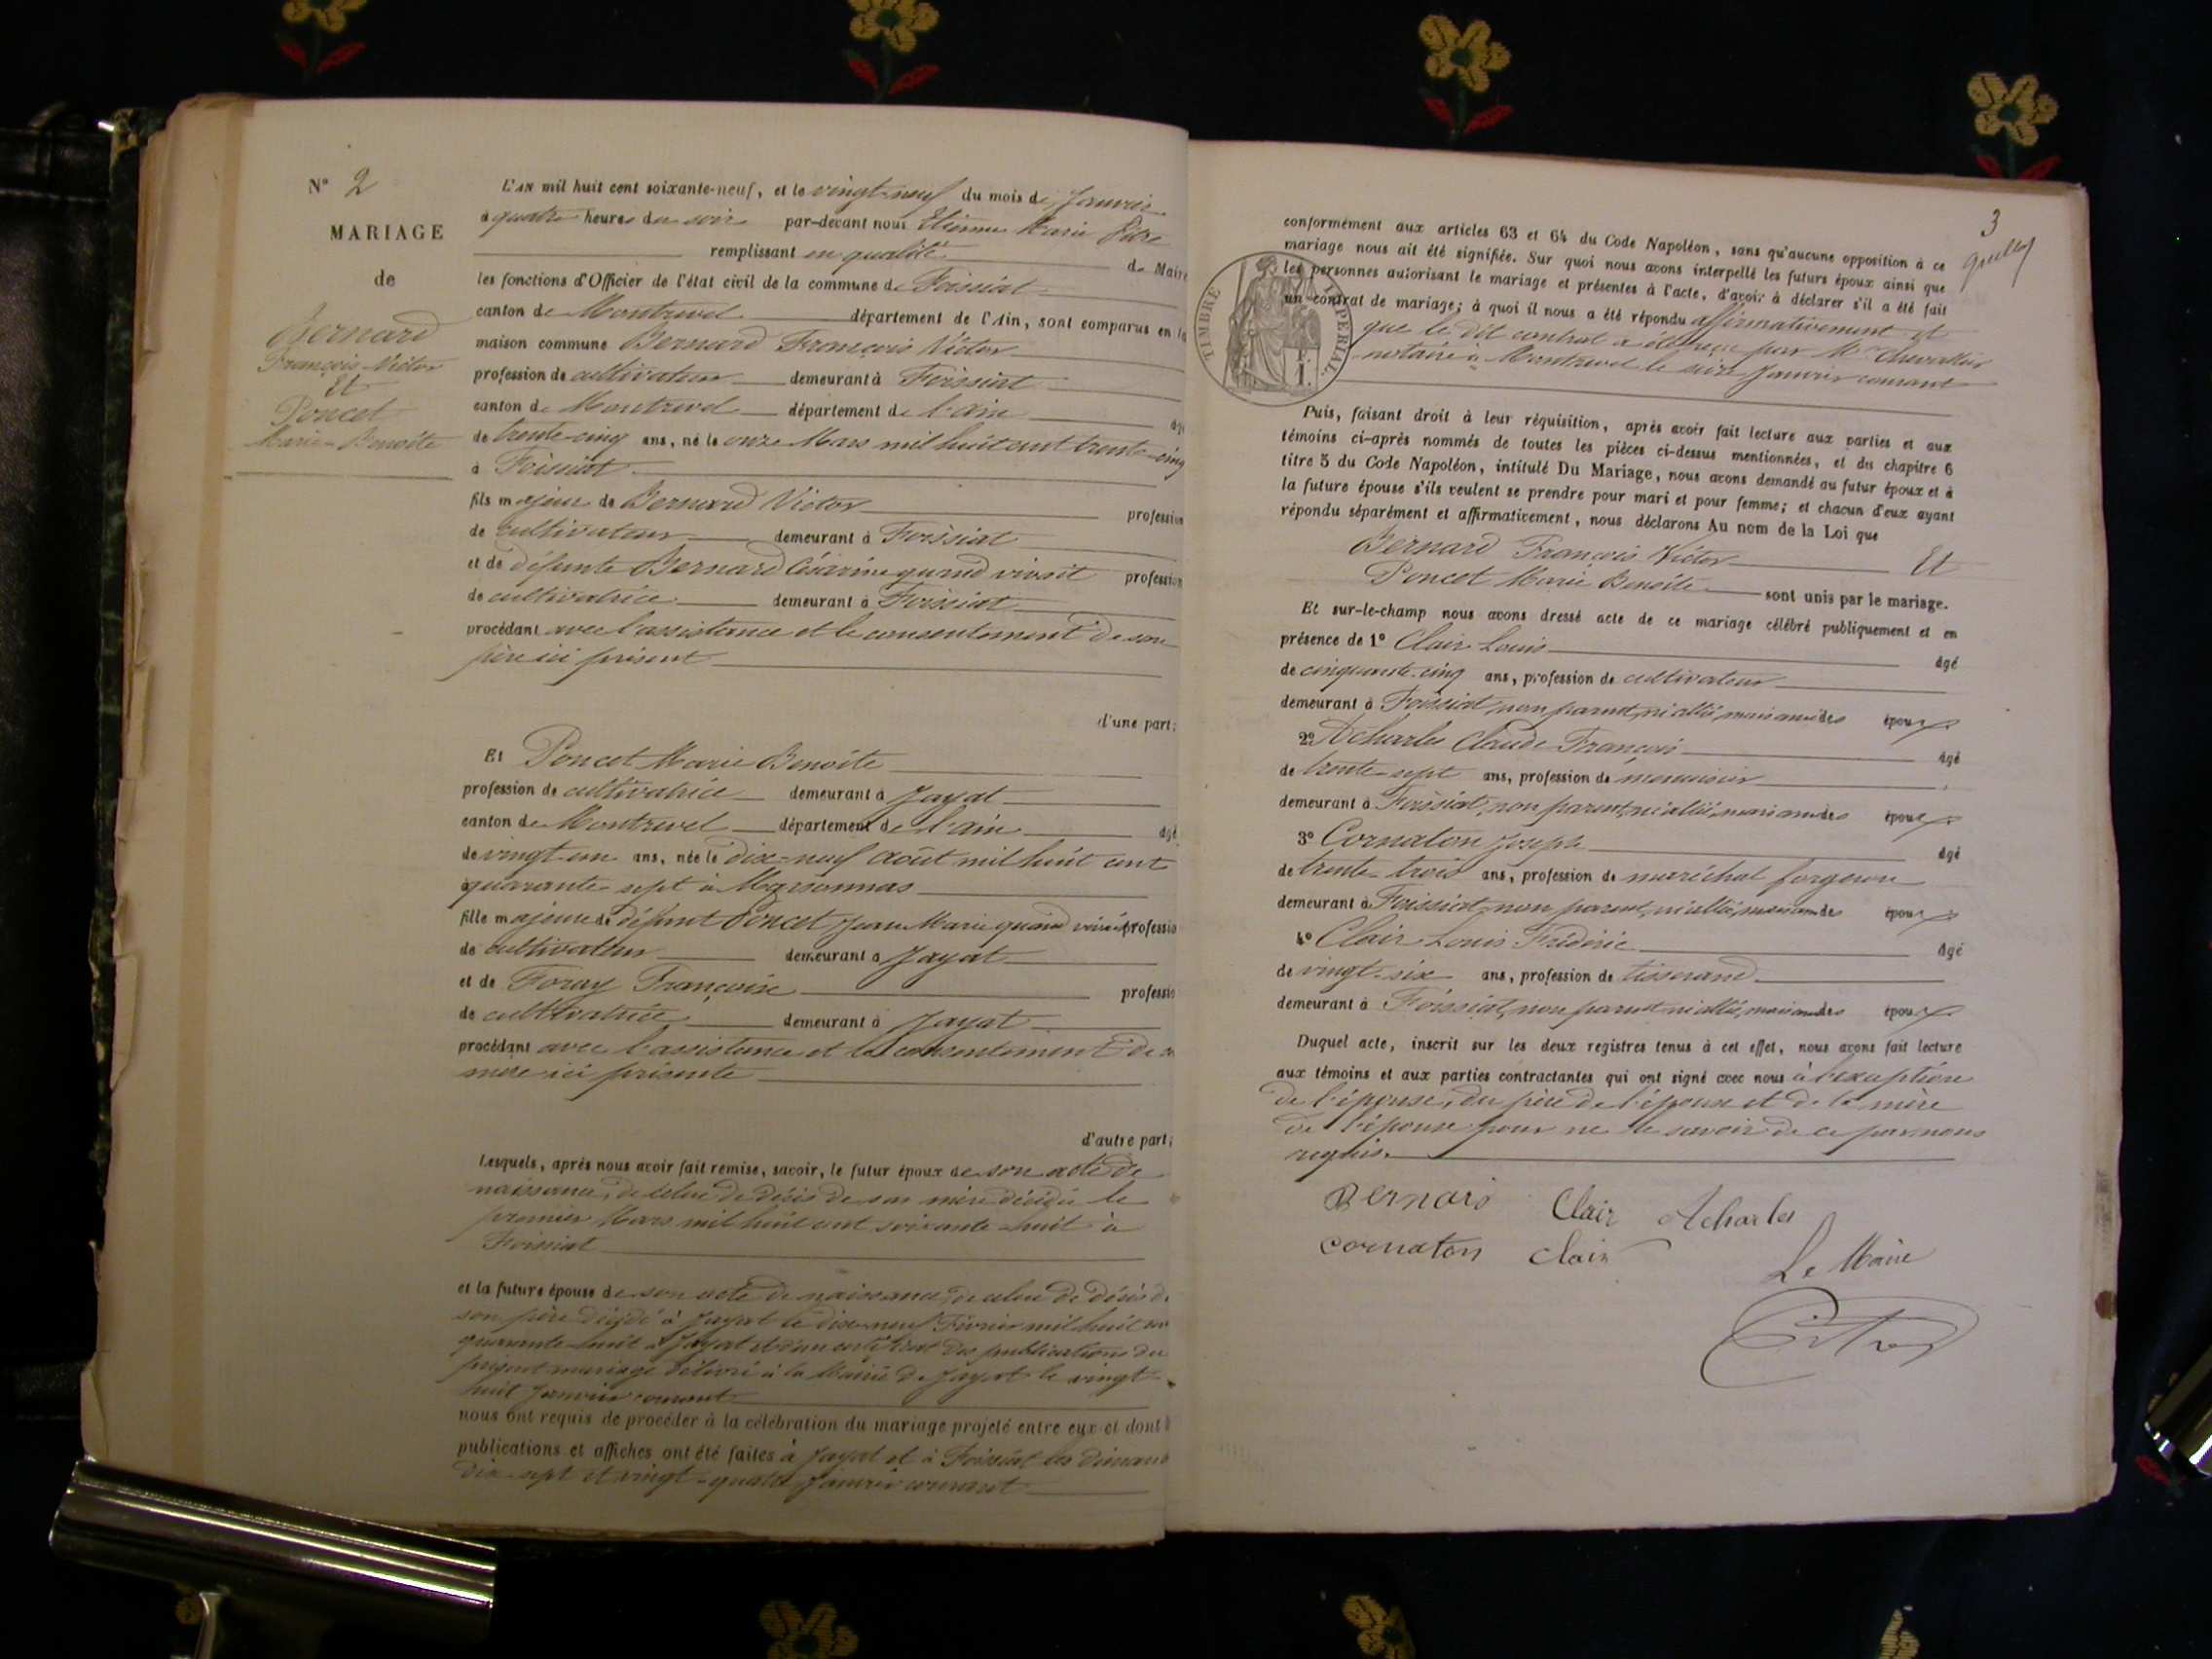 N° 2
MARIAGE
de
Bernard
François Victor
Et
Poncet
Marie Benoîte
L'AN mil huit cent soixante-neuf, et le vingt-neuf du mois de Janvier
à quatre heures du soir par-devant nous Etienne Marie Pitre
remplissant en qualité de Maire
les fonctions d'Officier de l'état civil de la commune de Foissiat
canton de Montrevel département de l'Ain, sont comparus en la
maison commune Bernard François Victor
profession de cultivateur demeurant à Foissiat
canton de Montrevel département de l'ain âgé
de trente-cinq ans, né le onze Mars mil huit cent trente-cinq
à Foissiat
fils majeur de Bernard Victor profession
de cultivateur demeurant à Foissiat
et de défunte Bernard Césarine quand vivait profession
de cultivatrice demeurant à Foissiat
procédant avec l'assistance et le consentement de son
père ici présent
d'une part;
Et Poncet Marie Benoîte
profession de cultivatrice demeurant à Jayat
canton de Montrevel département de l'ain âgé
de vingt-un ans, née le dix-neuf août mil huit cent
quarante-sept à Marsonnas
fille majeure de défunt Poncet Jean Marie quand vivait professio
de cultivateur demeurant à Jayat
et de Foray Françoise professio
de cultivatrice demeurant à Jayat
procédant avec l'assistance et le consentement de sa
mère ici présente
d'autre part;
Lesquels, après nous avoir fait remise, savoir, le futur époux de son acte de
naissance, de celui de décès de sa mère décédée le
premier Mars mil huit cent soixante-huit à
Foissiat
et la future épouse de son acte de naissance, de celui de décès de
son père décédé à Jayat le dix-neuf Février mil huit cent
quarante-huit à Jayat et d'un certificat des publications du
présent mariage délivré à la Mairie de Jayat le vingt-
huit Janvier courant
nous ont requis de procéder à la célébration du mariage projeté entre eux et dont
publications et affiches ont été faites à Jayat et à Foissiat les dimanc
dix-sept et vingt-quatre Janvier courant
3
conformément aux articles 63 et 64 du Code Napoléon, sans qu'aucune opposition à ce
mariage nous ait été signifiée. Sur quoi nous avons interpellé les futurs époux ainsi que
les personnes autorisant le mariage et présentes à l'acte, d'avoir à déclarer s'il a été fait
un contrat de mariage; à quoi il nous a été répondu affirmativement et
que le dit contrat a été reçu par Me Chevallier
notaire à Montrevel le seize Janvier courant
TIMBRE IMPERIAL
1 F.
Puis, faisant droit à leur réquisition, après avoir fait lecture aux parties et aux
témoins ci-après nommés de toutes les pièces ci-dessus mentionnées, et du chapitre 6
titre 5 du Code Napoléon, intitulé Du Mariage, nous avons demandé au futur époux et à
la future épouse s'ils veulent se prendre pour mari et pour femme; et chacun d'eux ayant
répondu séparément et affirmativement, nous déclarons Au nom de la Loi que
Bernard François Victor Et
Poncet Marie Benoîte sont unis par le mariage.
Et sur-le-champ nous avons dressé acte de ce mariage célébré publiquement et en
présence de 1° Clair Louis âgé
de cinquante-cinq ans, profession de cultivateur
demeurant à Foissiat, non parent, ni allié, mais ami des époux
2° Acharles Claude François âgé
de trente-sept ans, profession de menuisier
demeurant à Foissiat, non parent, ni allié, mais ami des époux
3° Cornaton Joseph âgé
de trente-trois ans, profession de maréchal forgeron
demeurant à Foissiat, non parent, ni allié, mais ami des époux
4° Clair Louis Frédéric âgé
de vingt-six ans, profession de tisserand
demeurant à Foissiat, non parent ni allié, mais ami des époux
Duquel acte, inscrit sur les deux registres tenus à cet effet, nous avons fait lecture
aux témoins et aux parties contractantes qui ont signé avec nous à l'exception
de l'épouse, du père de l'époux et de la mère
de l'épouse pour ne le savoir de ce par nous
requis.
Bernard Clair Acharles
Cornaton Clair
Le Maire
Pitre